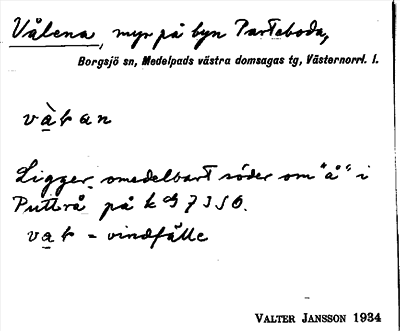 Vålena, myr på byn Parteboda,
Borgsjö sn, Medelpads västra domsagas tg, Västernorrl. l.
Ligger omedelbart söder om "å" i
Puttrå på k
= vindfälle
VALTER JANSSON 1934